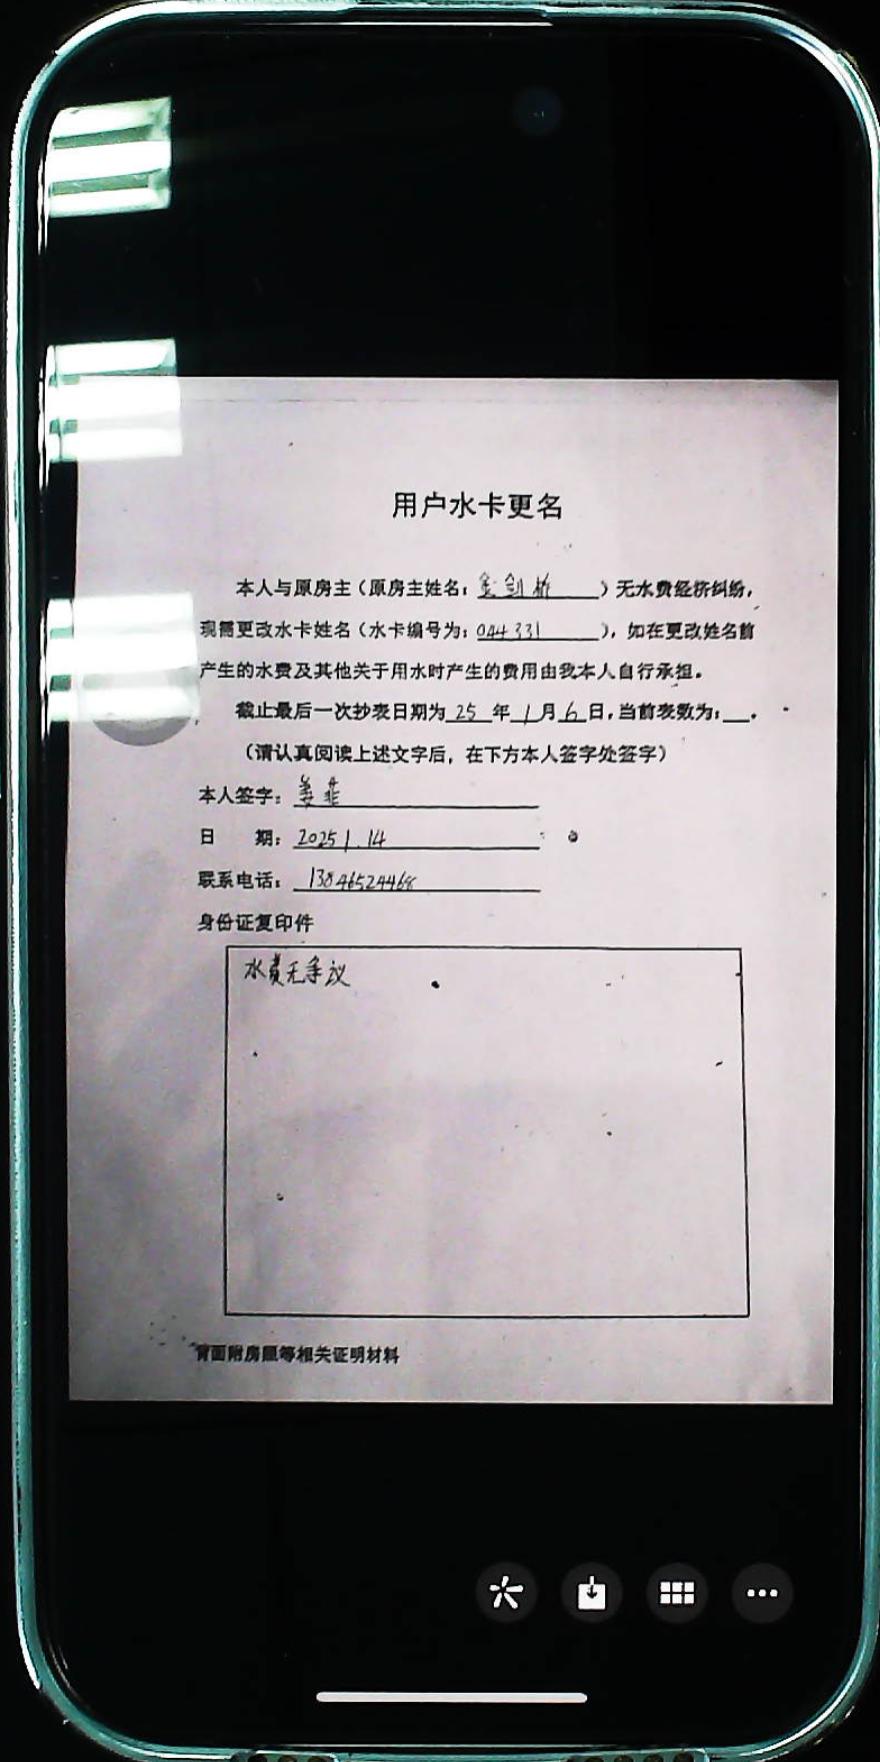 用户水卡更名
本人与原房主（原房主姓名：金剑桥）无水费经济纠纷，
现需更改水卡姓名（水卡编号为：044331），如在更改姓名前
产生的水费及其他关于用水时产生的费用由我本人自行承担。
截止最后一次抄表日期为 25 年 1 月 6 日，当前表数为：__。
（请认真阅读上述文字后，在下方本人签字处签字）
本人签字：姜菲
日 期：2025 1.14
联系电话：13846524468
身份证复印件
水费无争议
背面附房照等相关证明材料